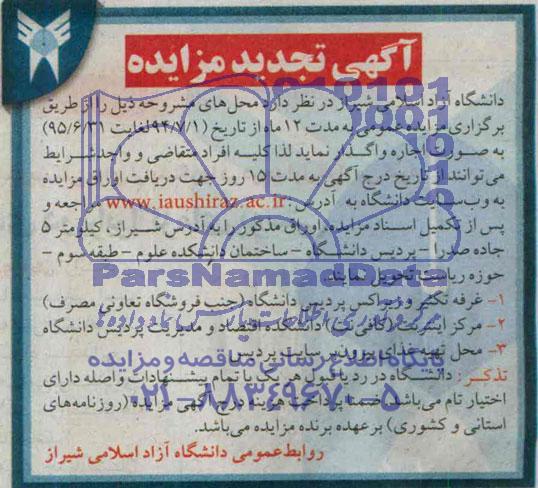 آگهی تجدید مزایده
دانشگاه آزاد اسلامی شیراز در نظر دارد محل‌های مشروحه ذیل را از طریق
برگزاری مزایده عمومی به مدت ۱۲ ماه از تاریخ (۹۴/۷/۱ لغایت ۹۵/۶/۳۱)
به صورت اجاره واگذار نماید لذا کلیه افراد متقاضی و واجد شرایط
می‌توانند از تاریخ درج آگهی به مدت ۱۵ روز جهت دریافت اوراق مزایده
به وب‌سایت دانشگاه به آدرس www.iaushiraz.ac.ir مراجعه و
پس از تکمیل اسناد مزایده، اوراق مذکور را به آدرس شیراز، کیلومتر ۵
جاده صدرا - پردیس دانشگاه - ساختمان دانشکده علوم - طبقه سوم -
حوزه ریاست تحویل نمایند.
۱- غرفه تکثیر و زیراکس پردیس دانشگاه (جنب فروشگاه تعاونی مصرف)
۲- مرکز اینترنت (کافی‌نت) دانشکده اقتصاد و مدیریت پردیس دانشگاه
۳- محل تهیه غذای سایت پردیس
تذکر: دانشگاه در رد یا قبول هر یک یا تمام پیشنهادات واصله دارای
اختیار تام می‌باشد. ضمنا پرداخت هزینه درج آگهی مزایده (روزنامه‌های
استانی و کشوری) بر عهده برنده مزایده می‌باشد.
روابط عمومی دانشگاه آزاد اسلامی شیراز
ParsNamadData
مرکز فرآوری اطلاعات پارس نماد داده‌ها
پایگاه اطلاع رسانی مناقصه و مزایده
۰۲۱-۸۸۳۴۹۶۷۰-۵